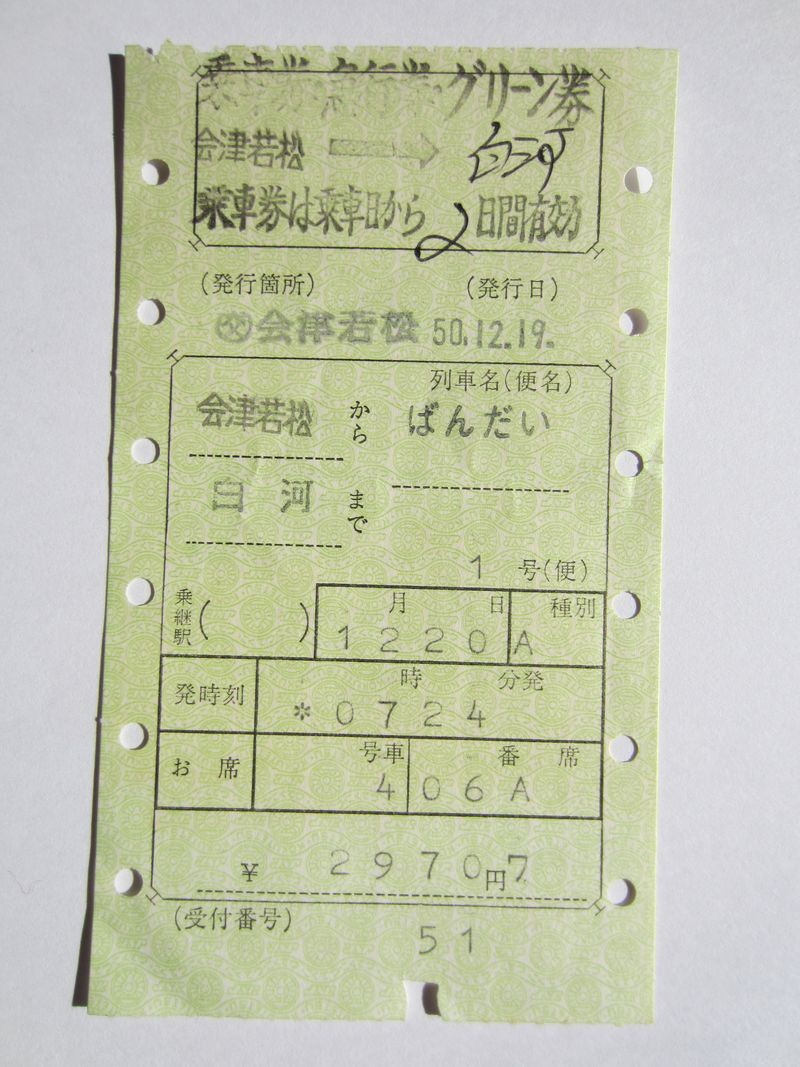 乗車券・急行券・グリーン券
会津若松 → 白河
乗車券は乗車日から 2 日間有効
(発行箇所) (発行日)
会津若松 50.12.19.
列車名(便名)
会津若松 から ばんだい
白河 まで
1 号(便)
乗継駅( ) 月 日 種別
1220 A
時 分発
発時刻 *0724
号車 番 席
お 席 4 06A
¥ 2970円7
(受付番号)
51